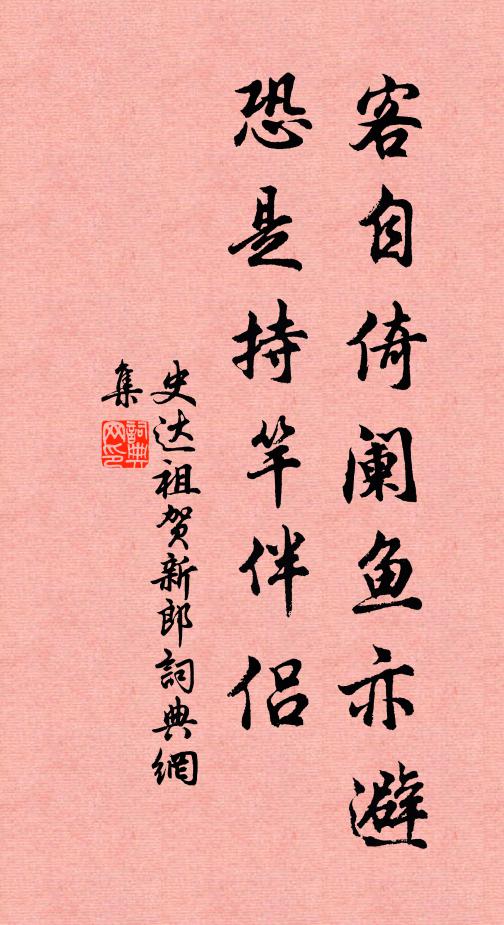 客自倚阑鱼亦避
恐是持竿伴侣
史达祖贺新郎詞典網
集
詞典
网印